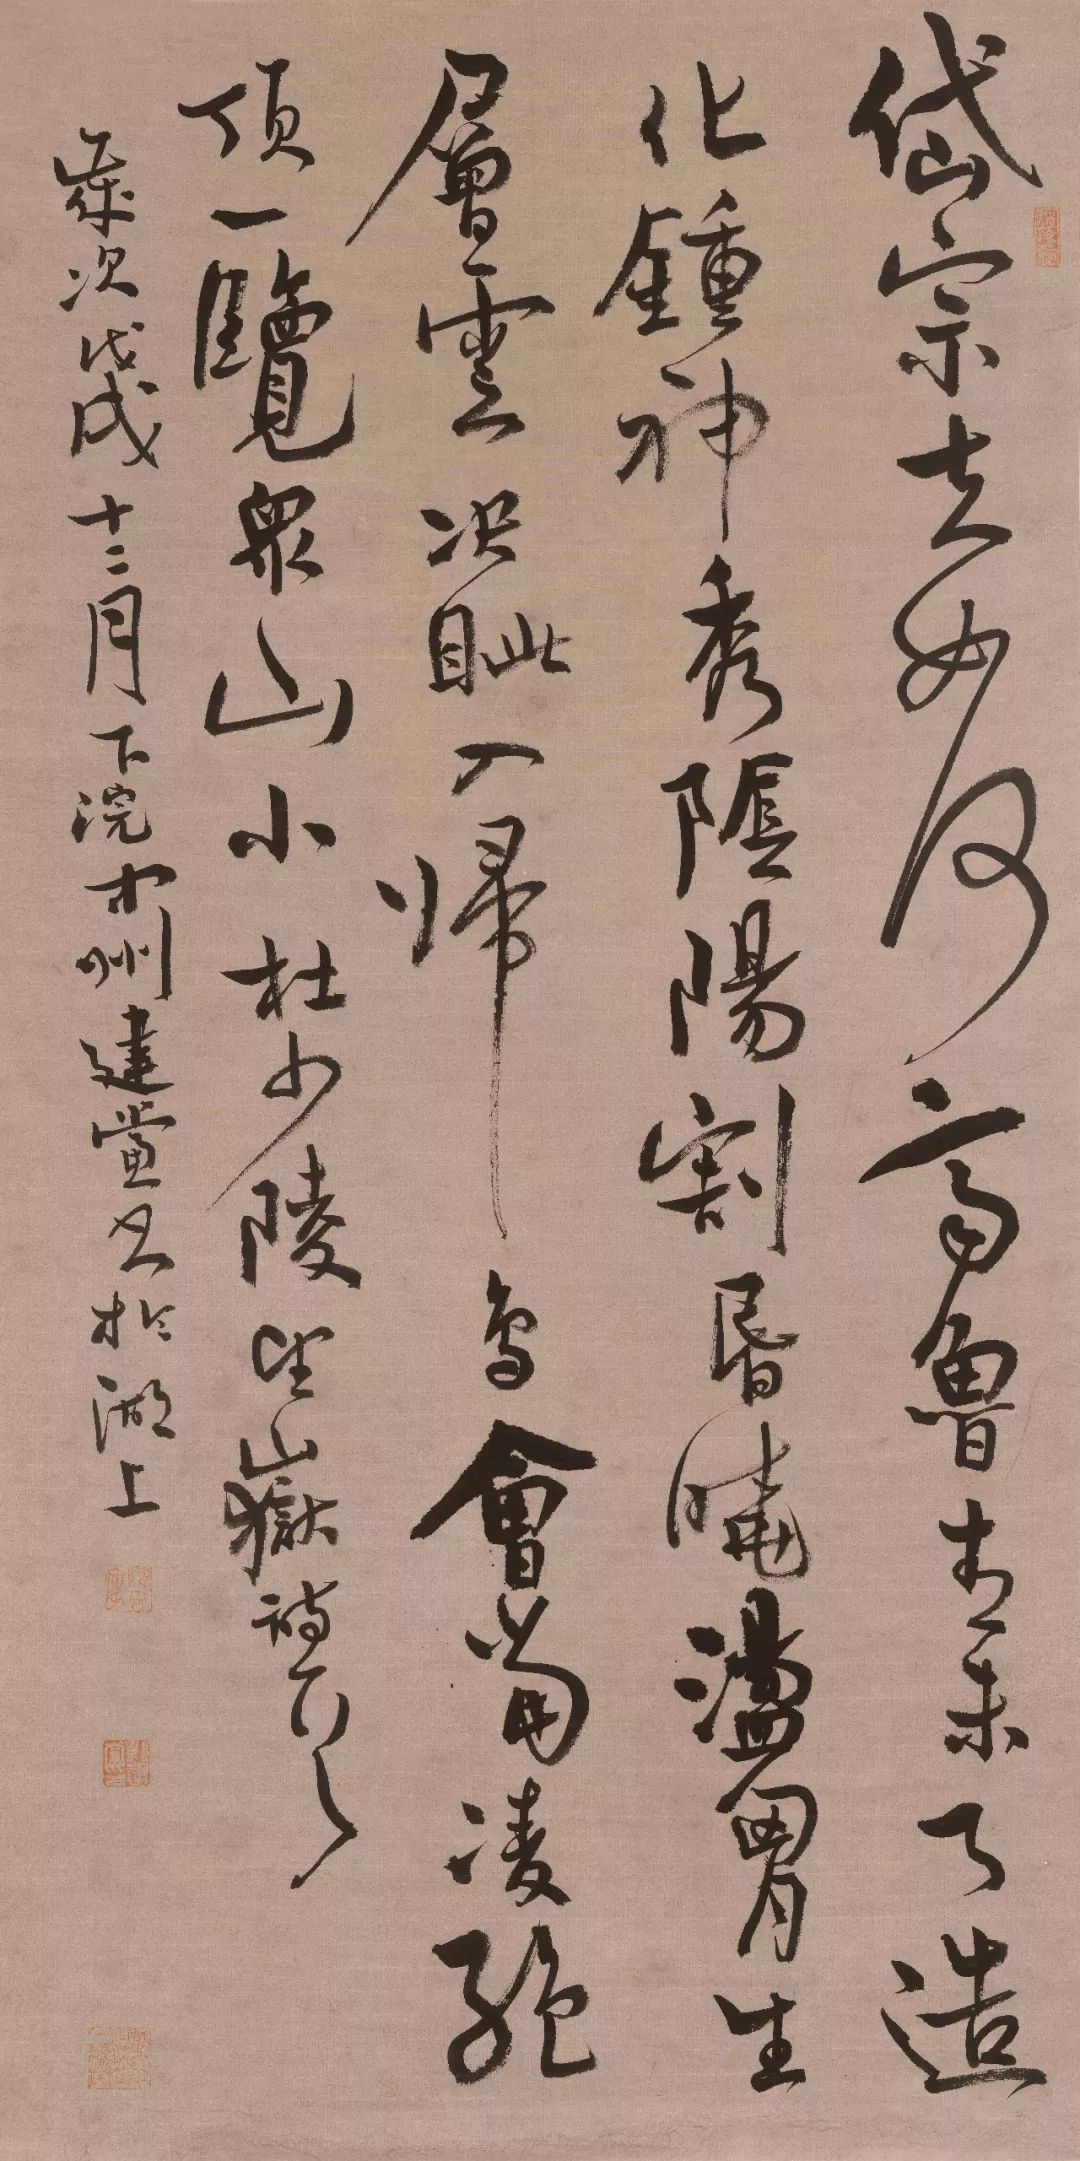 岱宗夫如何齊魯青未了造
化鍾神秀陰陽割昏曉盪胷生
層雲决眦入歸鳥會當凌絕
頂一覽眾山小杜少陵望嶽詩
歲次戊戌十二月下浣州建書於湖上